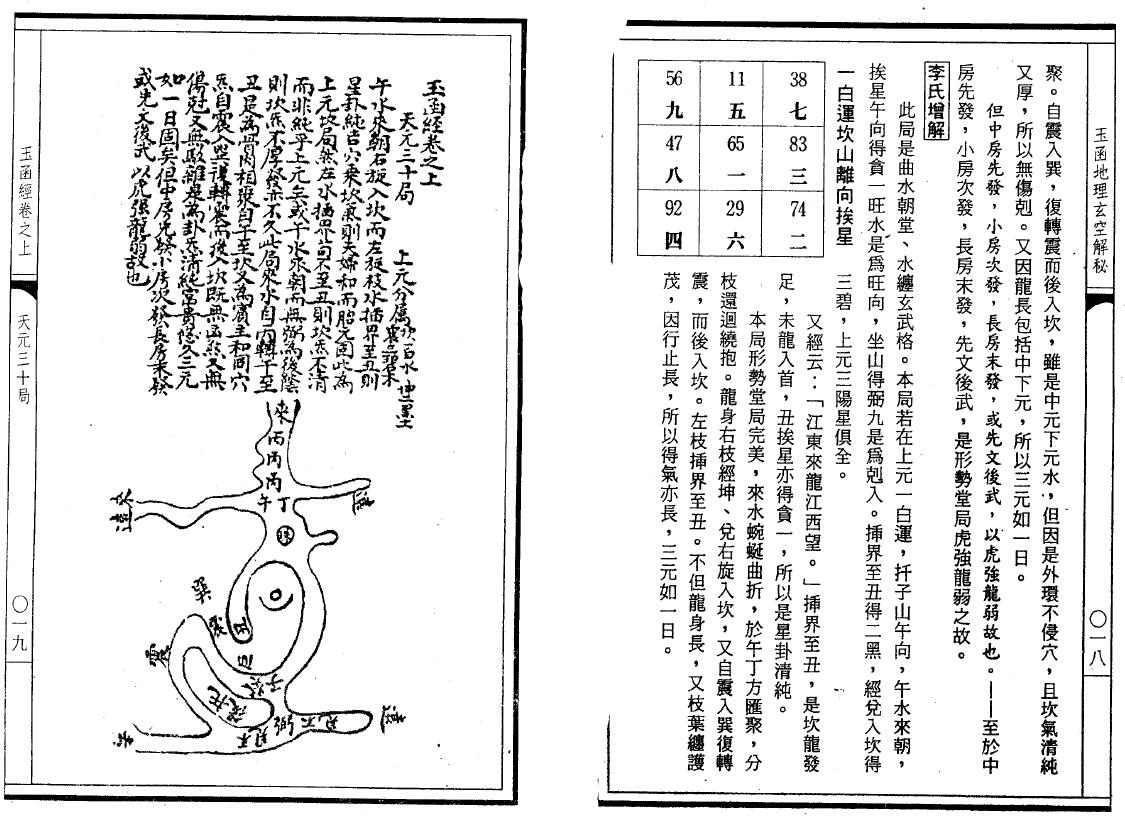 玉函地理玄空解秘
〇一八
聚。自震入巽，復轉震而後入坎，雖是中元下元水，但因是外環不侵穴，且坎氣清純
又厚，所以無傷剋。又因龍長包括中下元，所以三元如一日。
但中房先發，小房次發，長房末發，或先文後武，以虎強龍弱故也。——至於中
房先發，小房次發，長房末發，先文後武，是形勢堂局虎強龍弱之故。
李氏增解
此局是曲水朝堂、水纏玄武格。本局若在上元一白運，扞子山午向，午水來朝，
挨星午向得貪一旺水是爲旺向，坐山得弼九是爲剋入。挿界至丑得二黑，經兌入坎得
一白運坎山離向挨星
56 11 38
九 五 七
47 65 83
八 一 三
92 29 74
四 六 二
三碧，上元三陽星俱全。
又經云：「江東來龍江西望。」挿界至丑，是坎龍發
足，未龍入首，丑挨星亦得貪一，所以是星卦清純。
本局形勢堂局完美，來水蜿蜒曲折，於午丁方匯聚，分
枝還迴繞抱。龍身右枝經坤、兌右旋入坎，又自震入巽復轉
震，而後入坎。左枝挿界至丑。不但龍身長，又枝葉纏護
茂，因行止長，所以得氣亦長，三元如一日。
玉函經卷之上
天元三十局
上元分屬坎一白水 坤二黑土
震三碧木
午水來朝右旋入坎而左旋枝水插界至丑則
星卦純吉穴乘坎氣則夫婦和而胎元固此為
上元坎局然左水插界苟不至丑則坎炁不清
而非純乎上元矣或午水來朝而無弼為後蔭
則坎炁不厚發亦不久此局來水自丙轉午至
丑是為骨肉相聚自午至坎又為賓主和同穴
炁自震入巽復轉震而後入坎既無凶煞又無
傷尅又無駁雜是為卦炁清純富貴悠久三元
如一日固矣但中房先發小房次發長房末發
或先文後武以虎强龍弱故也
來
丙
丙
丙
午丁
巽
震
丑
子癸
震
弼
玉函經卷之上
天元三十局
〇一九